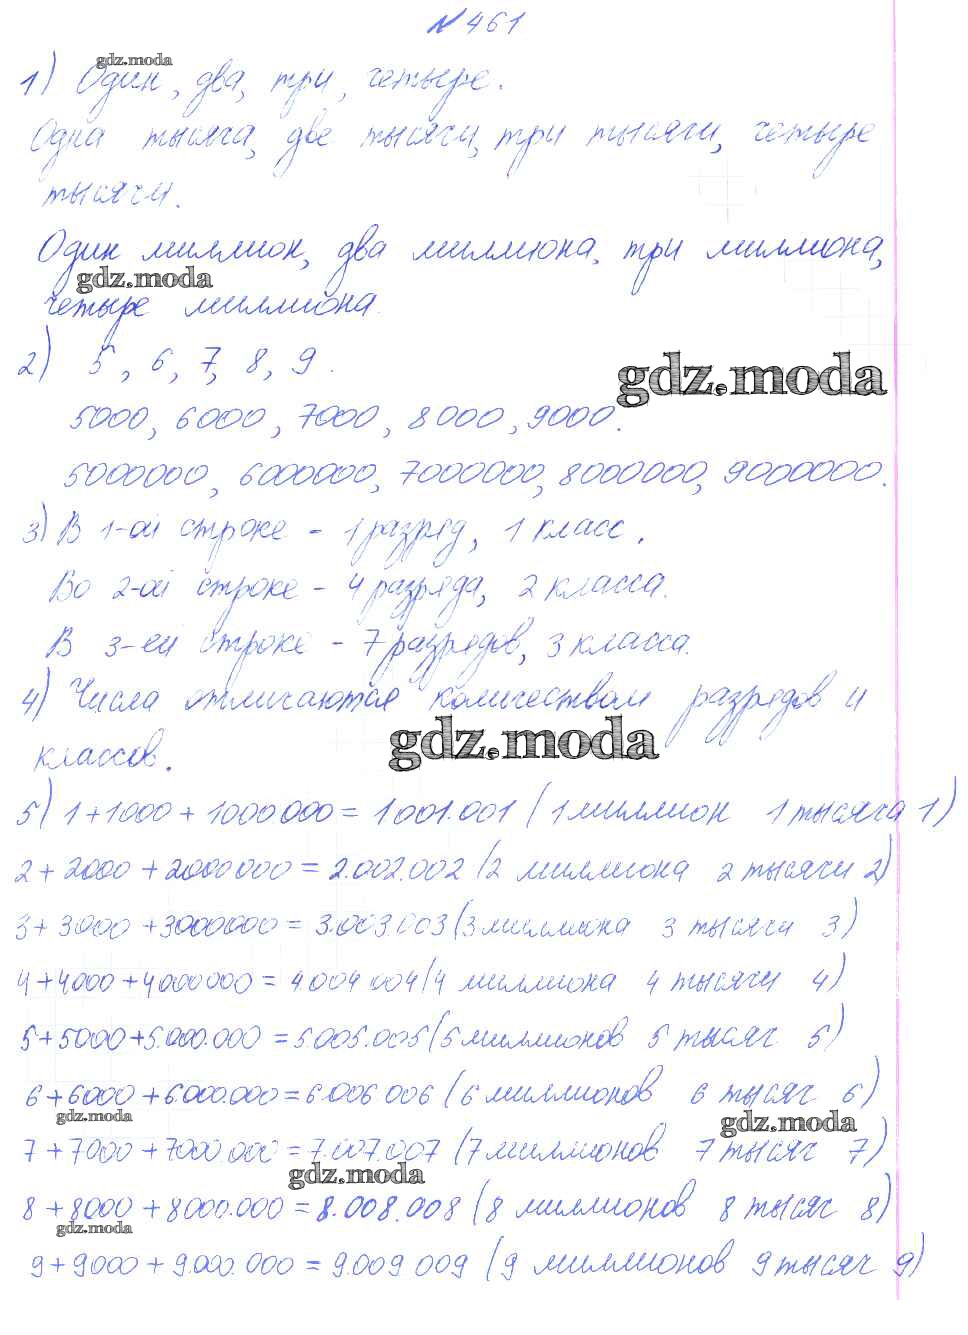 № 461
gdz.moda
1) Один, два, три, четыре.
Одна тысяча, две тысячи, три тысячи, четыре
тысячи.
Один миллион, два миллиона, три миллиона,
gdz.moda
четыре миллиона.
2) 5, 6, 7, 8, 9.
gdz.moda
5000, 6000, 7000, 8000, 9000.
5000000, 6000000, 7000000, 8000000, 9000000.
3) В 1-ой строке - 1 разряд, 1 класс.
Во 2-ой строке - 4 разряда, 2 класса.
В 3-ей строке - 7 разрядов, 3 класса.
4) Числа отличаются количеством разрядов и
gdz.moda
классов.
5) 1+1000+1000000= 1001.001 (1 миллион 1 тысяча 1)
2+2000+2000000=2.002.002 (2 миллиона 2 тысячи 2)
3+3000+3000000= 3.003.003 (3 миллиона 3 тысячи 3)
4+4000+4000000=4.004.004 (4 миллиона 4 тысячи 4)
5+5000+5.000.000=5.005.005 (5 миллионов 5 тысяч 5)
6+6000+6.000.000=6.006 006 (6 миллионов 6 тысяч 6)
gdz.moda
gdz.moda
7+7000+7000.000=7.007.007 (7 миллионов 7 тысяч 7)
gdz.moda
8+8000+8000.000=8.008.008 (8 миллионов 8 тысяч 8)
gdz.moda
9+9000+9.000.000=9.009 009 (9 миллионов 9 тысяч 9)